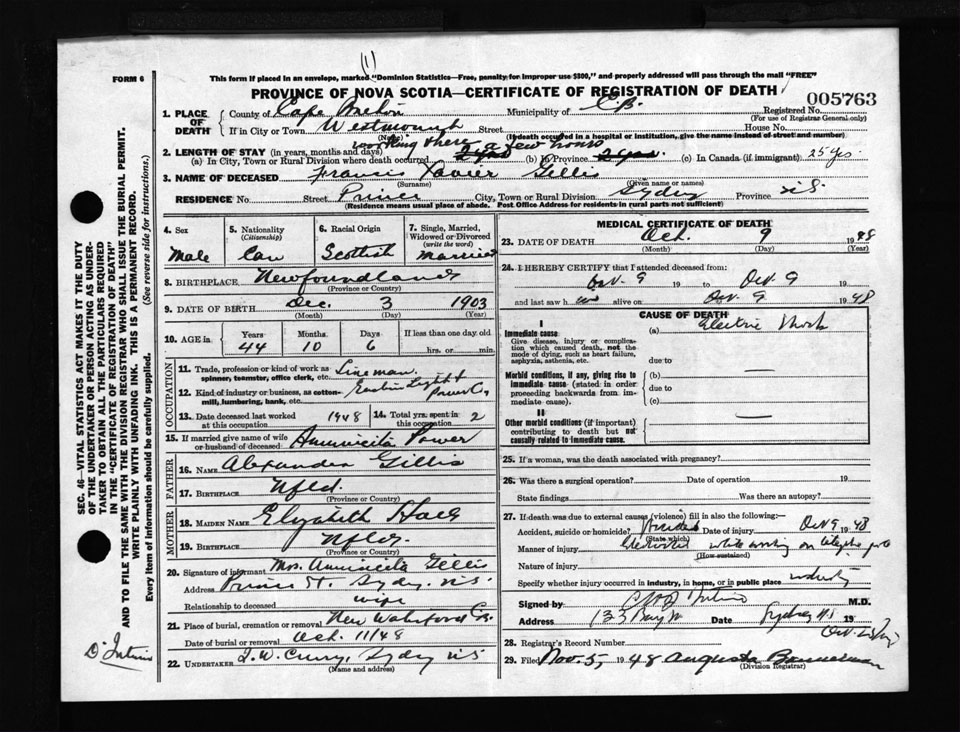 (1)
FORM 6
This form if placed in an envelope, marked "Dominion Statistics—Free, penalty for improper use $300," and properly addressed will pass through the mail "FREE"
PROVINCE OF NOVA SCOTIA—CERTIFICATE OF REGISTRATION OF DEATH
005763
1. PLACE OF DEATH
County of Cape Breton Municipality of C.B. Registered No.
(For use of Registrar General only)
If in City or Town Street House No.
(Name) (If death occurred in a hospital or institution, give the name instead of street and number)
working there a few hours
2. LENGTH OF STAY (in years, months and days)
(a) In City, Town or Rural Division where death occurred (b) in Province (c) In Canada (if immigrant) 25 yrs
3. NAME OF DECEASED Francis Xavier Gillis
(Surname) (Given name or names)
RESIDENCE No. Street Prince City, Town or Rural Division Sydney Province N.S.
(Residence means usual place of abode. Post Office Address for residents in rural parts not sufficient)
4. Sex Male
5. Nationality (Citizenship) Can
6. Racial Origin Scottish
7. Single, Married, Widowed or Divorced (write the word) Married
8. BIRTHPLACE Newfoundland
(Province or Country)
9. DATE OF BIRTH Dec. 3 1903
(Month) (Day) (Year)
10. AGE in Years 44 Months 10 Days 6 If less than one day old hrs. or min.
OCCUPATION
11. Trade, profession or kind of work as spinner, teamster, office clerk, etc. Lineman.
12. Kind of industry or business, as cotton-mill, lumbering, bank, etc. Light & Power Co.
13. Date deceased last worked at this occupation 1948
14. Total yrs. spent in this occupation 2
15. If married give name of wife or husband of deceased Power
FATHER
16. NAME Alexander Gillis
17. BIRTHPLACE Nfld.
(Province or Country)
MOTHER
18. MAIDEN NAME Elizabeth
19. BIRTHPLACE Nfld.
(Province or Country)
20. Signature of informant Mrs. Gillis
Address Prince St. Sydney N.S.
Relationship to deceased wife
21. Place of burial, cremation or removal New Waterford C.B.
Date of burial or removal Oct. 11/48
22. UNDERTAKER T. W. Curry, Sydney N.S.
(Name and address)
MEDICAL CERTIFICATE OF DEATH
23. DATE OF DEATH Oct. 9 1948
(Month) (Day) (Year)
24. I HEREBY CERTIFY that I attended deceased from:
Oct. 9 19 to Oct. 9 19
and last saw h im alive on Oct 9 1948
CAUSE OF DEATH
I
Immediate cause (a) Electric Shock
Give disease, injury or complication which caused death, not the mode of dying, such as heart failure, asphyxia, asthenia, etc. due to
Morbid conditions, if any, giving rise to immediate cause (stated in order proceeding backwards from immediate cause). (b) due to (c)
II
Other morbid conditions (if important) contributing to death but not causally related to immediate cause.
25. If a woman, was the death associated with pregnancy?
26. Was there a surgical operation? Date of operation 19
State findings Was there an autopsy?
27. If death was due to external causes (violence) fill in also the following:—
Accident, suicide or homicide? Accident Date of injury Oct 9 1948
(State which)
Manner of injury while working on
(How sustained)
Nature of injury
Specify whether injury occurred in industry, in home, or in public place industry
Signed by M.D.
Address Date Sydney N.S. 19
28. Registrar's Record Number
29. Filed Nov. 5, 1948 Augusta Bannerman
(Division Registrar)
SEC. 46—VITAL STATISTICS ACT MAKES IT THE DUTY OF THE UNDERTAKER OR PERSON ACTING AS UNDERTAKER TO OBTAIN ALL THE PARTICULARS REQUIRED IN THE "CERTIFICATE OF REGISTRATION OF DEATH"
AND TO FILE THE SAME WITH THE DIVISION REGISTRAR WHO SHALL ISSUE THE BURIAL PERMIT.
WRITE PLAINLY WITH UNFADING INK. THIS IS A PERMANENT RECORD.
Every item of information should be carefully supplied. (See reverse side for instructions.)